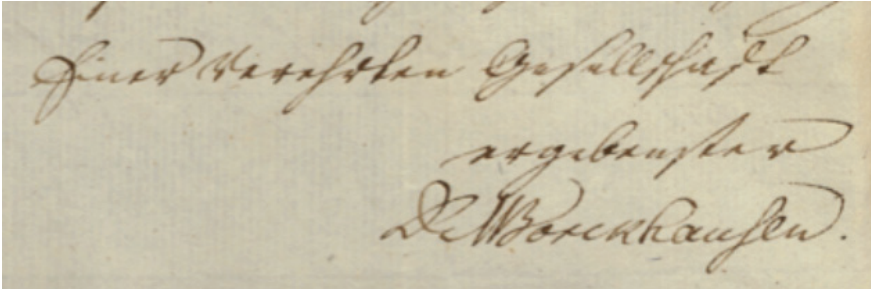 Einer Verehrten Gesellschaft
ergebenster
Dr. M Borckhausen.